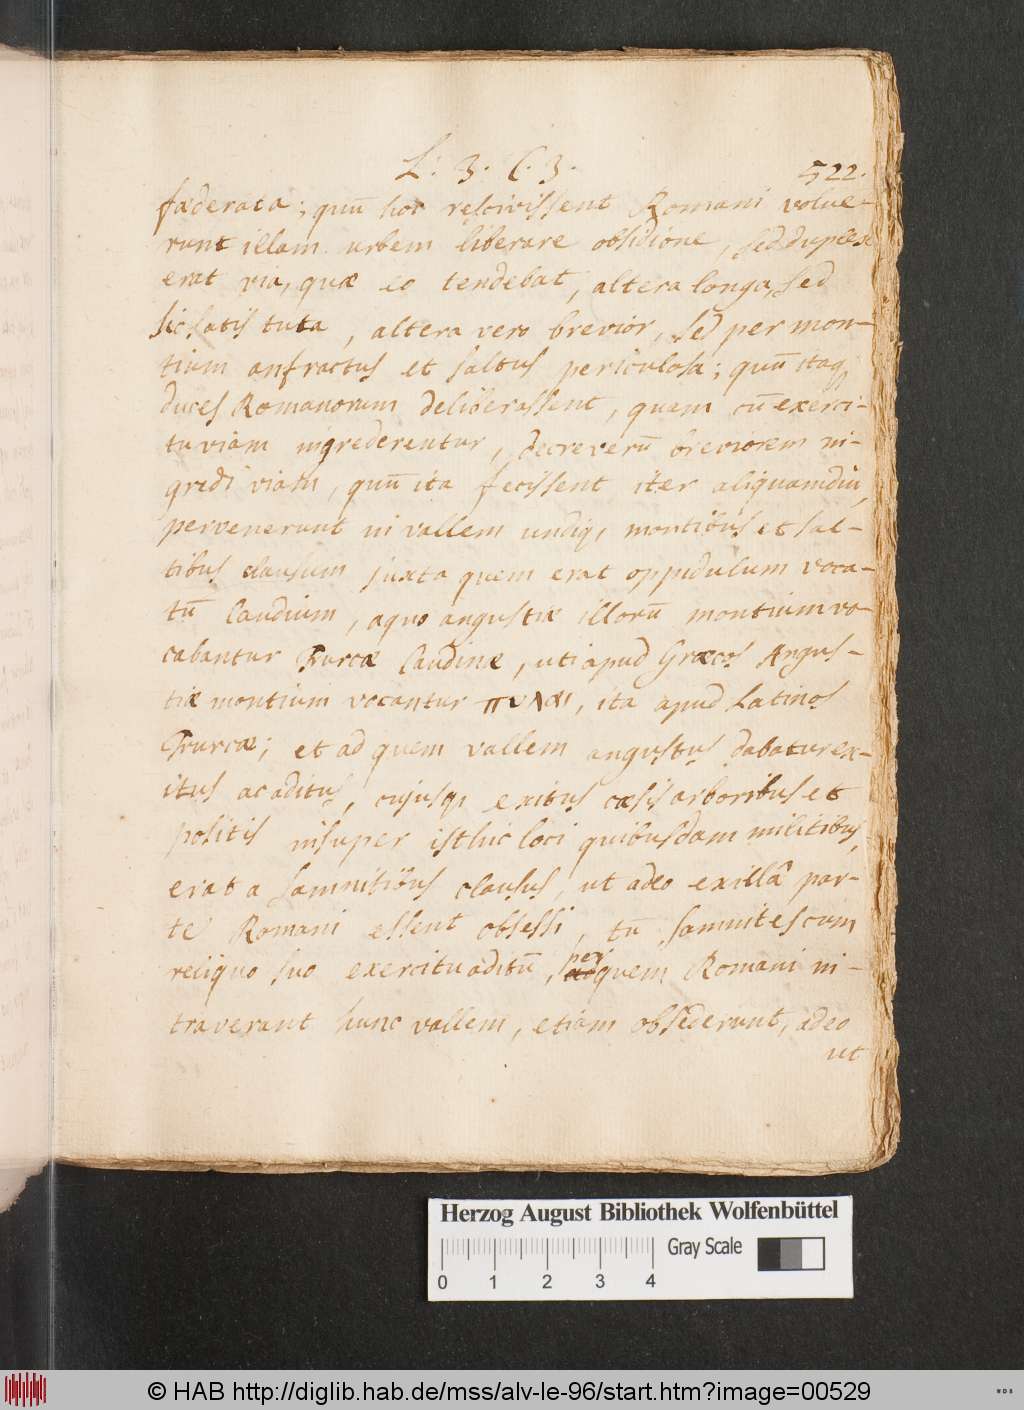 L: 3. C. 3. 522.
fæderata; quū hoc rescivissent Romani volue-
runt illam urbem liberare obsidione, sed duplex
erat via, quæ eo tendebat, altera longa, sed
sic satis tuta, altera vero brevior, sed per mon-
tium anfractus et saltus periculosa; quū itaq,
duces Romanorum deliberassent, quam cū exerci-
tu viam ingrederentur, decreverū breviorem in-
gredi viam, quū ita fecissent iter aliquamdiu,
pervenerunt in vallem undiq, montibus et sal-
tibus clausum juxta quem erat oppidulum voca-
tū Caudium, a quo angustiæ illorū montium vo-
cabantur Furcæ Caudinæ, uti apud Græcos Angus-
tiæ montium vocantur πυλαι, ita apud Latinos
Furcæ; et ad quem vallem angustus dabatur ex-
itus ac aditus, cujusqi exitus cæsis arboribus et
positis insuper isthic loci quibusdam militibus,
erat a Samnitibus clausus, ut adeo ex illâ par-
te Romani essent obsessi, tū Samnites cum
reliquo suo exercitu aditū, per quem Romani in-
traverant hunc vallem, etiam obsederunt, adeo
ut
Herzog August Bibliothek Wolfenbüttel
0 1 2 3 4 Gray Scale
© HAB http://diglib.hab.de/mss/alv-le-96/start.htm?image=00529